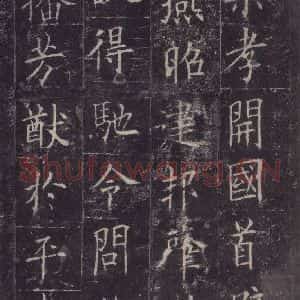 孝開國首
燕昭建邦肇
得馳令問
播芳猷於平
Shufawang.CN